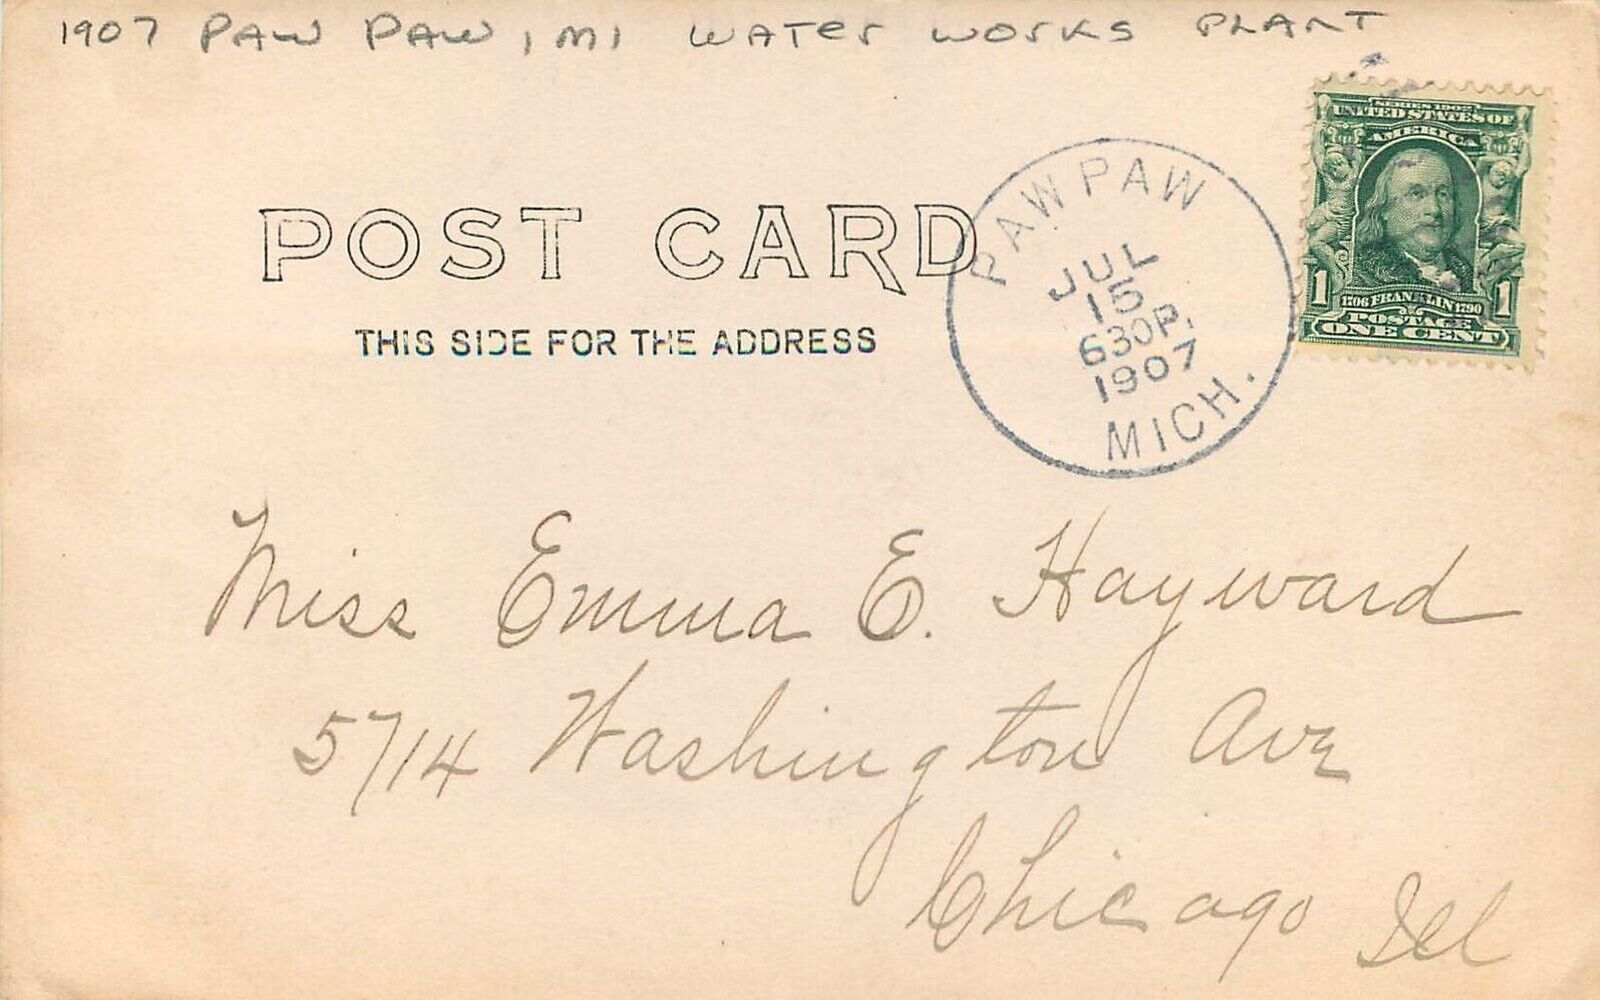 1907 PAW PAW, MI WATER WORKS PLANT
SERIES 1902
UNITED STATES OF
AMERICA
1 1706 FRANKLIN 1790 1
POSTAGE
ONE CENT
PAW PAW
JUL
15
630P.
1907
MICH.
POST CARD
THIS SIDE FOR THE ADDRESS
Miss Emma E. Hayward
5714 Washington Ave
Chicago Ill